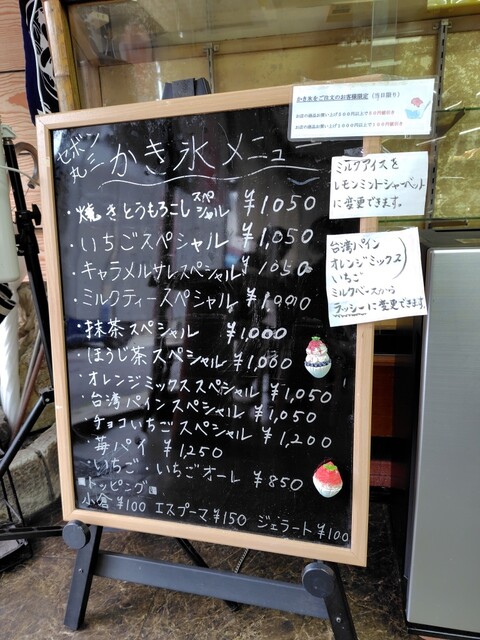 かき氷をご注文のお客様限定(当日限り)
セボン
丸ミ
かき氷メニュー
・焼きとうもろこしスペシャル ¥1050
・いちごスペシャル ¥1,050
・キャラメルサレスペシャル ¥1050
・ミルクティースペシャル ¥1,000
・抹茶スペシャル ¥1,000
・ほうじ茶スペシャル ¥1,000
・オレンジミックススペシャル ¥1,050
・台湾パインスペシャル ¥1,050
・チョコいちごスペシャル ¥1,200
・苺パイ ¥1,250
・いちご・いちごオーレ ¥850
トッピング
小倉 ¥100 エスプーマ ¥150 ジェラート ¥100
ミルクアイスを
レモンミントシャーベット
に変更できます。
台湾パイン
オレンジミックス
いちご
ミルクベースから
ラッシーに変更できます。